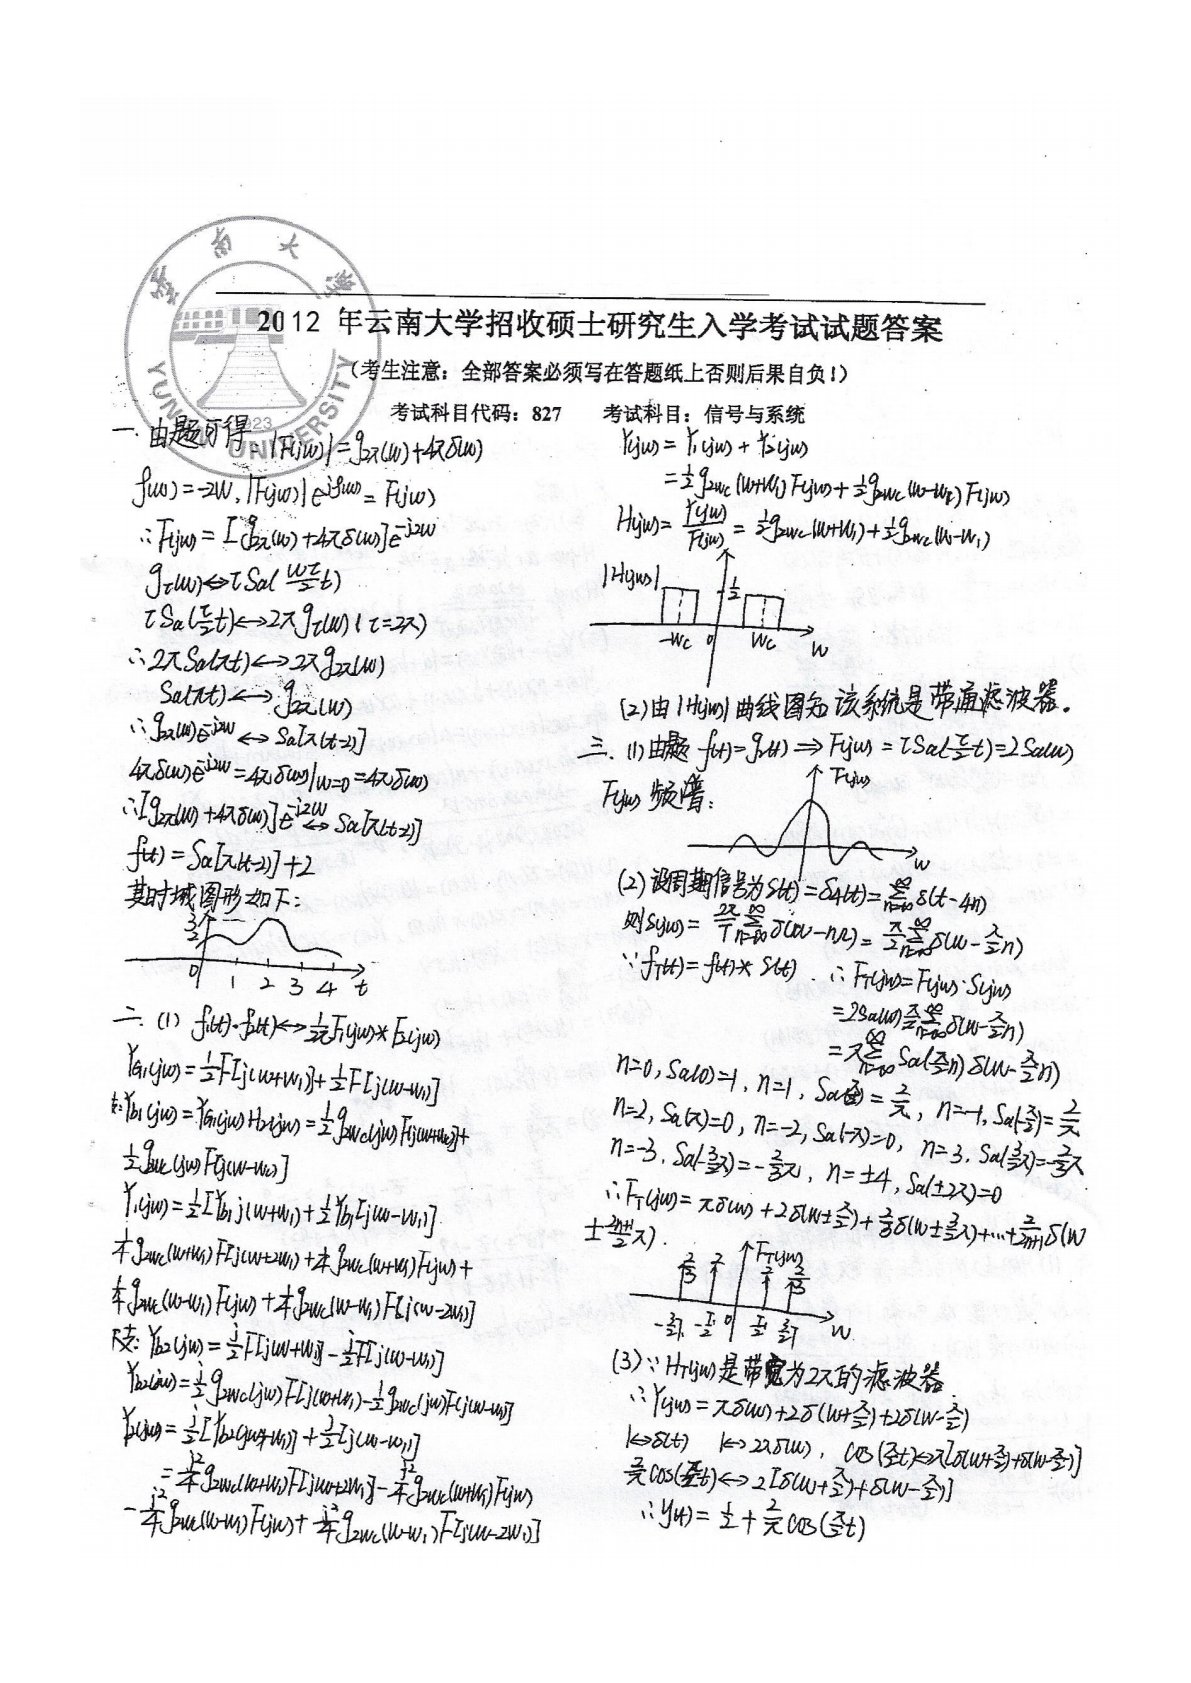 云南大学
YUNNAN UNIVERSITY
1923
2012 年云南大学招收硕士研究生入学考试试题答案
（考生注意：全部答案必须写在答题纸上否则后果自负！）
考试科目代码：827 考试科目：信号与系统
一. 由题可得 |F(jw)|=g2π(w)+4πδ(w)
φ(w)=-2w, |F(jw)|e^{jφ(w)}=F(jw)
∴F(jw)=[g2π(w)+4πδ(w)]e^{-j2w}
τSa(τ/2 t)↔2πgτ(w) (τ=2π)
∴2πSa(πt)↔2πg2π(w)
Sa(πt)↔g2π(w)
∴g2π(w)e^{-j2w}↔Sa[π(t-2)]
4πδ(w)e^{-j2w}=4πδ(w)|w=0=4πδ(w)
∴[g2π(w)+4πδ(w)]e^{-j2w}↔Sa[π(t-2)]
f(t)=Sa[π(t-2)]+2
其时域图形如下：
3
2
0 1 2 3 4 t
二. (1) f1(t)·f2(t)↔1/2π F1(jw)*F2(jw)
YG1(jw)=1/2F[j(w+w1)]+1/2F[j(w-w1)]
Yb1(jw)=YG1(jw)H2(jw)=1/2g2wc(jw)F[j(w+wc)]+
1/2g2wc(jw)F[j(w-wc)]
Y1(jw)=1/2[Yb1j(w+w1)+1/2Yb1[j(w-w1)]
1/4g2wc(w+w1)F[j(w+2w1)]+1/4g2wc(w+w1)F(jw)+
1/4g2wc(w-w1)F(jw)+1/4g2wc(w-w1)F[j(w-2w1)]
Yb2(jw)=j/2F[j(w+w1)]-j/2F[j(w-w1)]
Yb2(jw)=j/2g2wc(jw)F[j(w+w1)-j/2g2wc(jw)F(j(w-w1)]
=j²/4g2wc(w+w1)F[j(w+2w1)]-j²/4g2wc(w+w1)F(jw)
-j²/4g2wc(w-w1)F(jw)+j²/4g2wc(w-w1)F[j(w-2w1)]
Y(jw)=Y1(jw)+Y2(jw)
=1/2g2wc(w+w1)F(jw)+1/2g2wc(w-w1)F(jw)
H(jw)=Y(jw)/F(jw)=1/2g2wc(w+w1)+1/2g2wc(w-w1)
|H(jw)| 1/2
-wc 0 wc w
(2)由|H(jw)|曲线图知该系统是带通滤波器。
三. (1)由题 f(t)=g2(t)⇒F(jw)=τSa(τ/2 t)=2Sa(w)
F(jw)频谱：
F(jw)
w
(2)设周期信号为S(t)=δ4(t)=∑n=-∞^∞ δ(t-4n)
则S(jw)=2π/T ∑n=-∞^∞ δ(w-nΩ)=π/2 ∑n=-∞^∞ δ(w-π/2 n)
∵fT(t)=f(t)*S(t) ∴FT(jw)=F(jw)·S(jw)
=2Sa(w)π/2 ∑n=-∞^∞ δ(w-π/2 n)
=π∑n=-∞^∞ Sa(π/2 n)δ(w-π/2 n)
n=0, Sa(0)=1, n=1, Sa(π/2)=2/π, n=-1, Sa(-π/2)=2/π
n=2, Sa(π)=0, n=-2, Sa(-π)=0, n=3, Sa(3/2π)=-2/3π
n=-3, Sa(-3/2π)=-2/3π, n=±4, Sa(±2π)=0
∴FT(jw)=πδ(w)+2δ(w±π/2)+2/3δ(w±3/2π)+…+2/2n+1δ(w
±2n+1/2 π).
FT(jw)
2/3 2 2 2/3
-3/2π -π/2 0 π/2 3/2π w
(3)∵HT(jw)是带宽为2π的滤波器.
∴Y(jw)=πδ(w)+2δ(w+π/2)+2δ(w-π/2)
1↔δ(t) 1↔2πδ(w), cos(π/2t)↔π[δ(w+π/2)+δ(w-π/2)]
2/πcos(π/2t)↔2[δ(w+π/2)+δ(w-π/2)]
∴y(t)=1/2+2/πcos(π/2t)